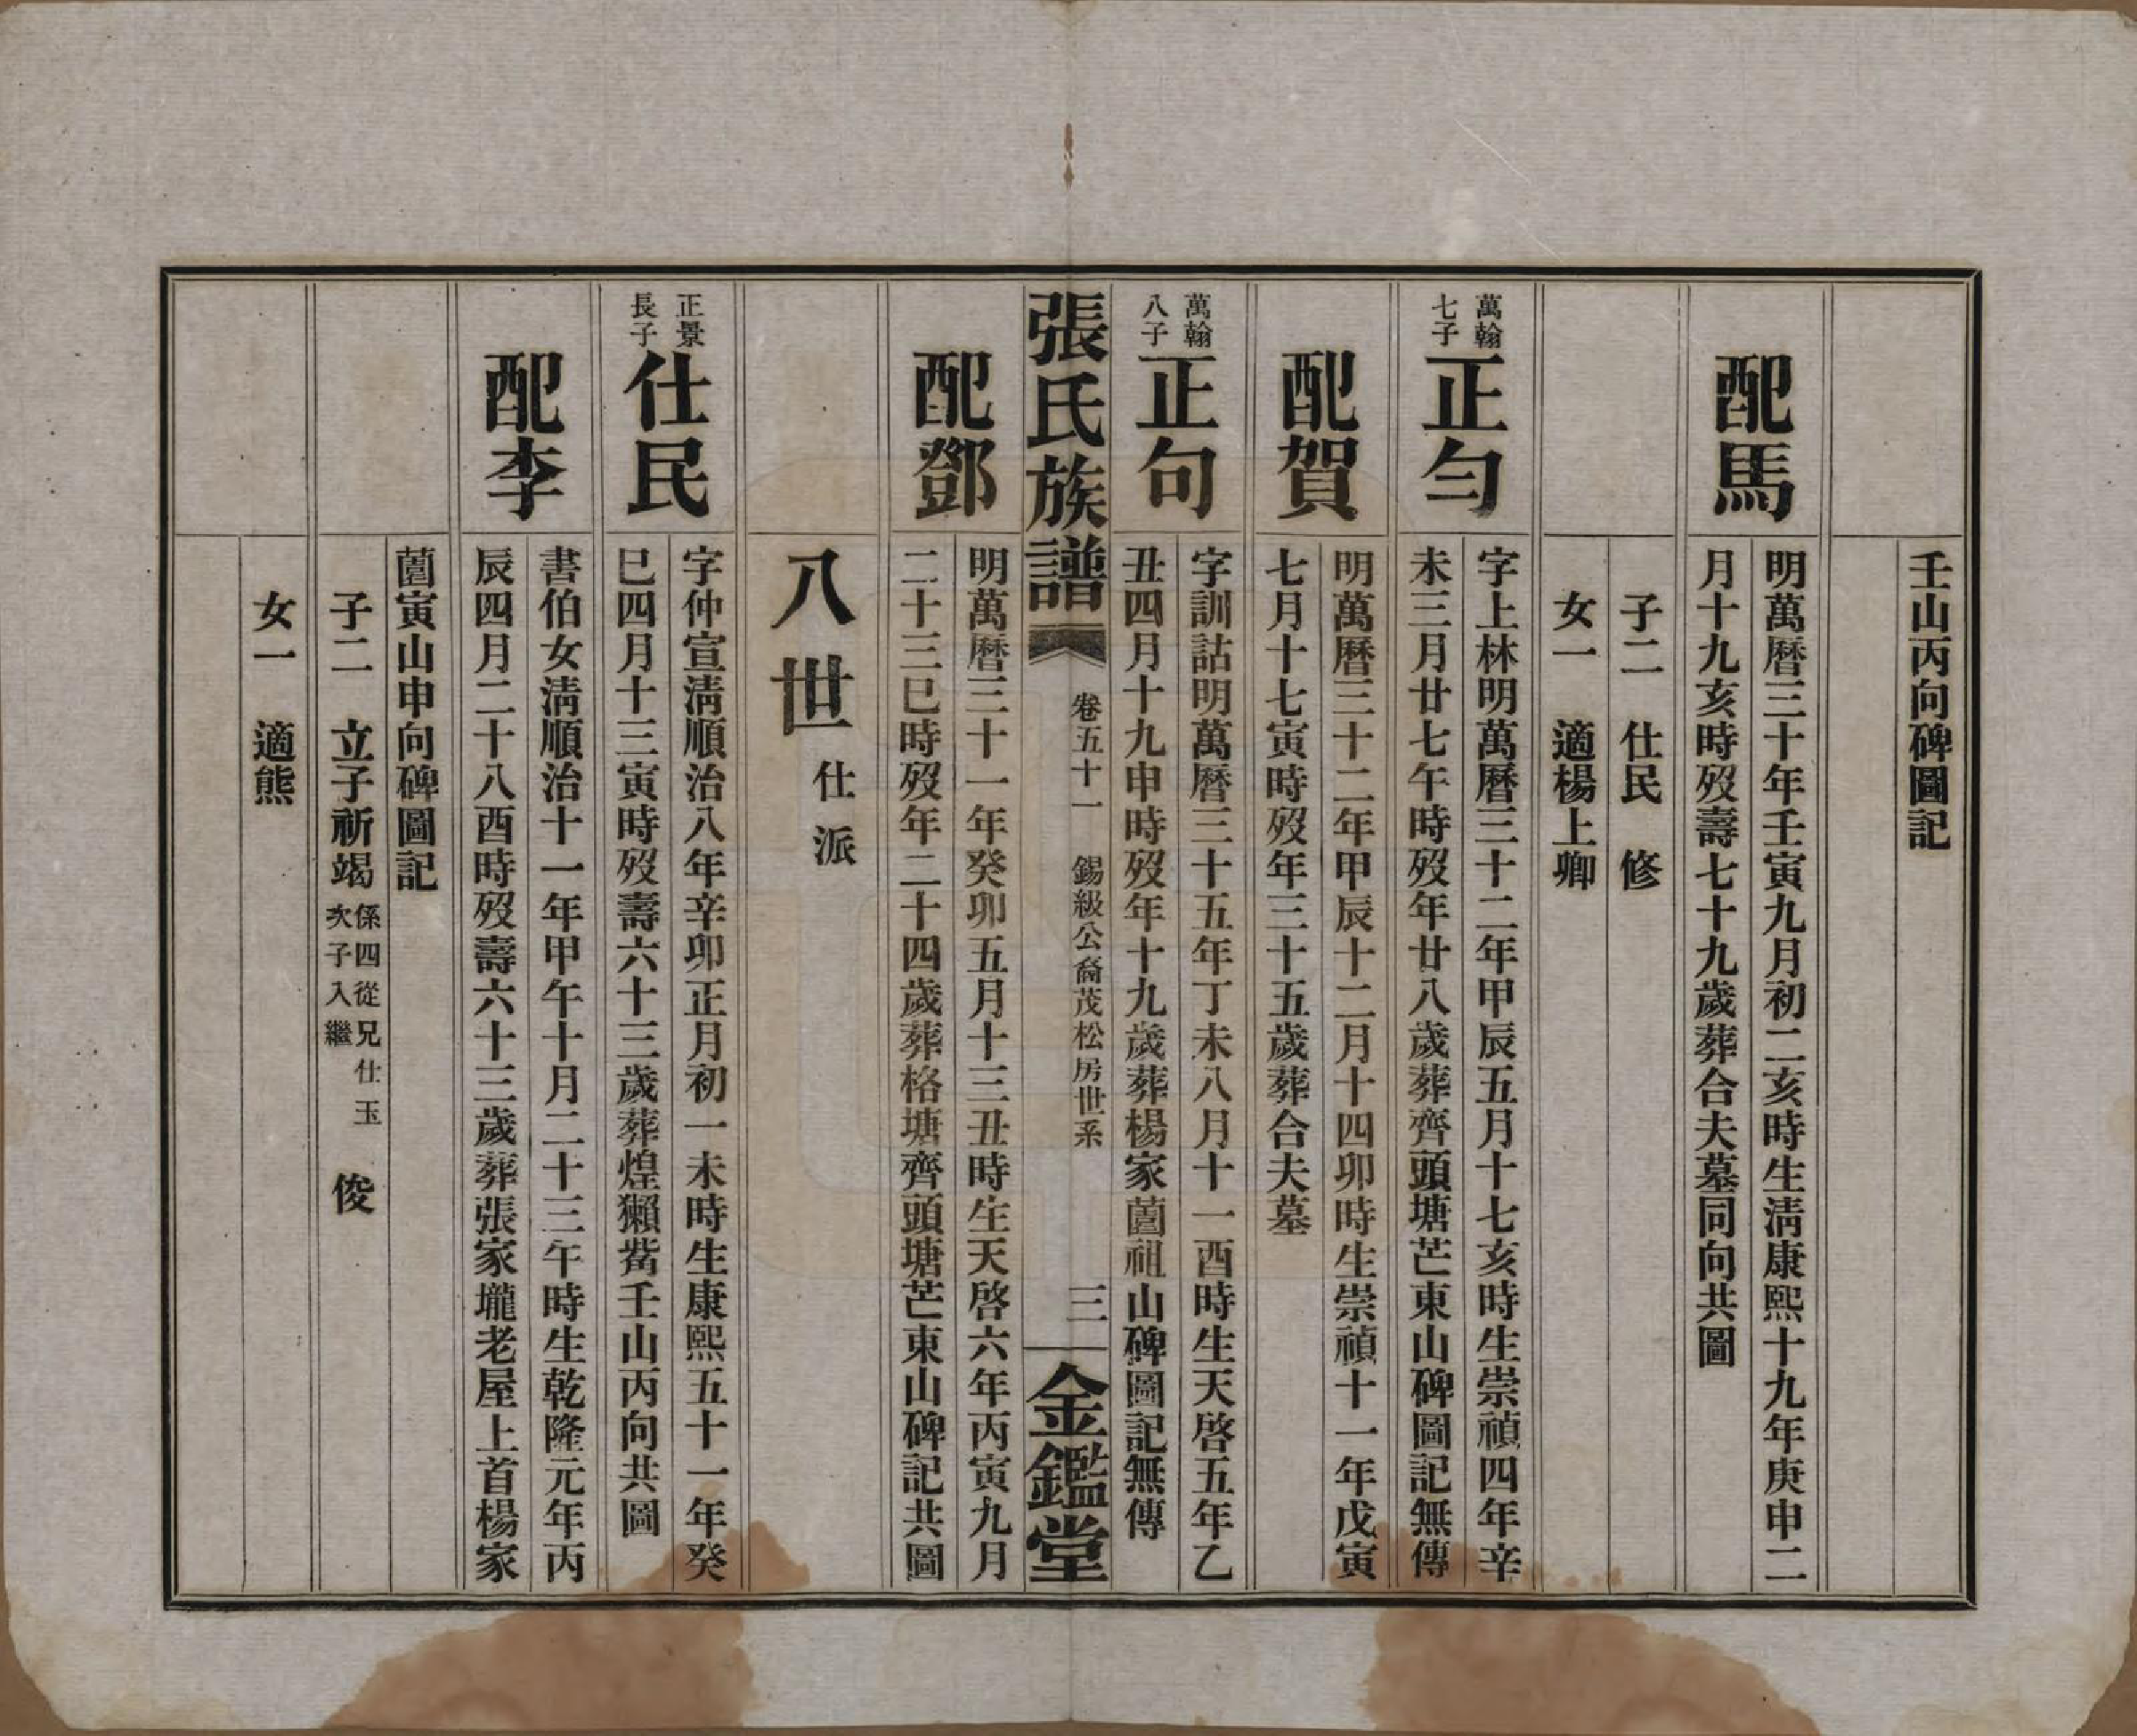 壬山丙向碑圖記
配馬
明萬曆三十年壬寅九月初二亥時生淸康熙十九年庚申二
月十九亥時歿壽七十九歲葬合夫墓同向共圖
子二　仕民　修
女一　適楊上卿
萬翰
七子
正勻
字上林明萬曆三十二年甲辰五月十七亥時生崇禎四年辛
未三月廿七午時歿年廿八歲葬齊頭塘芒東山碑圖記無傳
配賀
明萬曆三十二年甲辰十二月十四卯時生崇禎十一年戊寅
七月十七寅時歿年三十五歲葬合夫墓
萬翰
八子
正句
字訓詁明萬曆三十五年丁未八月十一酉時生天啓五年乙
丑四月十九申時歿年十九歲葬楊家薗祖山碑圖記無傳
張氏族譜
卷五十一　錫級公裔茂松房世系
三
金鑑堂
配鄧
明萬曆三十一年癸卯五月十三丑時生天啓六年丙寅九月
二十三巳時歿年二十四歲葬格塘齊頭塘芒東山碑記共圖
八世
仕派
正景
長子
仕民
字仲宣淸順治八年辛卯正月初一未時生康熙五十一年癸
巳四月十三寅時歿壽六十三歲葬煌獺觜壬山丙向共圖
配李
書伯女淸順治十一年甲午十月二十三午時生乾隆元年丙
辰四月二十八酉時歿壽六十三歲葬張家壠老屋上首楊家
薗寅山申向碑圖記
子二　立子祈竭
係四從兄仕玉
次子入繼
俊
女一　適熊